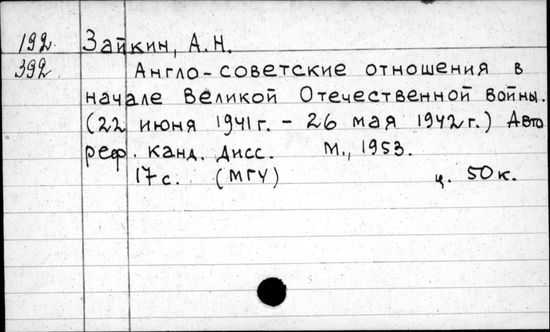 192. Зайкин, А.Н.
392. Англо-советские отношения в
начале Великой Отечественной войны.
(22 июня 1941г. - 26 мая 1942г.) Авто
реф. канд. дисс. М., 1953.
17с. (МГУ) ц. 50к.